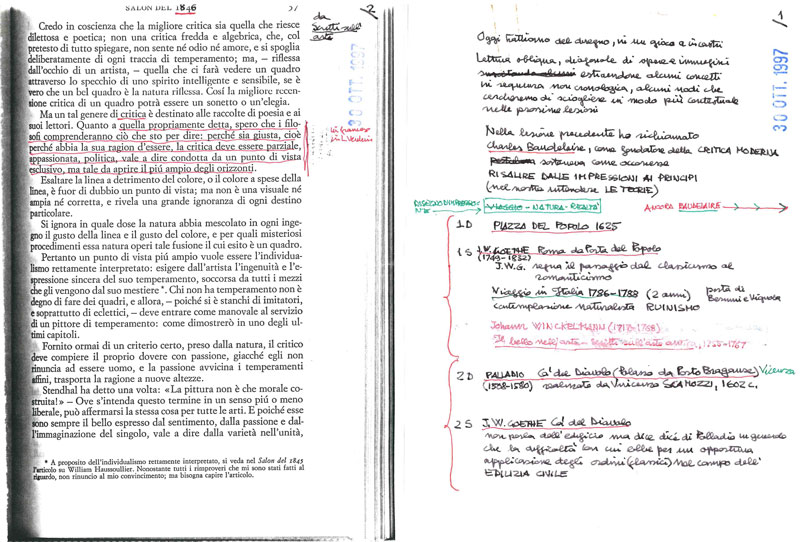 SALON DEL 1846 57
2
da
Scritti sull'
arte
30 OTT. 1997
Credo in coscienza che la migliore critica sia quella che riesce
dilettosa e poetica; non una critica fredda e algebrica, che, col
pretesto di tutto spiegare, non sente né odio né amore, e si spoglia
deliberatamente di ogni traccia di temperamento; ma, – riflessa
dall'occhio di un artista, – quella che ci farà vedere un quadro
attraverso lo specchio di uno spirito intelligente e sensibile, se è
vero che un bel quadro è la natura riflessa. Cosí la migliore recen-
sione critica di un quadro potrà essere un sonetto o un'elegia.
Ma un tal genere di critica è destinato alle raccolte di poesia e ai
suoi lettori. Quanto a quella propriamente detta, spero che i filo-
sofi comprenderanno ciò che sto per dire: perché sia giusta, cioè
perché abbia la sua ragion d'essere, la critica deve essere parziale,
appassionata, politica, vale a dire condotta da un punto di vista
esclusivo, ma tale da aprire il piú ampio degli orizzonti.
Esaltare la linea a detrimento del colore, o il colore a spese della
linea, è fuor di dubbio un punto di vista; ma non è una visuale né
ampia né corretta, e rivela una grande ignoranza di ogni destino
particolare.
Si ignora in quale dose la natura abbia mescolato in ogni inge-
gno il gusto della linea e il gusto del colore, e per quali misteriosi
procedimenti essa natura operi tale fusione il cui esito è un quadro.
Pertanto un punto di vista piú ampio vuole essere l'individua-
lismo rettamente interpretato: esigere dall'artista l'ingenuità e l'e-
spressione sincera del suo temperamento, soccorsa da tutti i mezzi
che gli vengono dal suo mestiere*. Chi non ha temperamento non è
degno di fare dei quadri, e allora, – poiché si è stanchi di imitatori,
e soprattutto di eclettici, – deve entrare come manovale al servizio
di un pittore di temperamento: come dimostrerò in uno degli ul-
timi capitoli.
Fornito ormai di un criterio certo, preso dalla natura, il critico
deve compiere il proprio dovere con passione, giacché egli non
rinuncia ad essere uomo, e la passione avvicina i temperamenti
affini, trasporta la ragione a nuove altezze.
Stendhal ha detto una volta: «La pittura non è che morale co-
struita!» – Ove s'intenda questo termine in un senso piú o meno
liberale, può affermarsi la stessa cosa per tutte le arti. E poiché esse
sono sempre il bello espresso dal sentimento, dalla passione e dal-
l'immaginazione del singolo, vale a dire dalla varietà nell'unità,
* A proposito dell'individualismo rettamente interpretato, si veda nel Salon del 1845
l'articolo su William Haussoullier. Nonostante tutti i rimproveri che mi sono stati fatti al
riguardo, non rinuncio al mio convincimento; ma bisogna capire l'articolo.
1
30 OTT. 1997
Oggi trattiamo del disegno, in un gioco a incastri
Lettura obliqua, diagonale di opere e immagini
estraendone alcuni concetti
in sequenza non cronologica, alcuni nodi che
cercheremo di sciogliere in modo più contestuale
nelle prossime lezioni
Nella lezione precedente ho richiamato
Charles Baudelaire, come fondatore della CRITICA MODERNA
sosteneva come occorresse
RISALIRE DALLE IMPRESSIONI AI PRINCIPI
(nel nostro intendere LE TEORIE)
VIAGGIO - NATURA - REALTA'
ANCORA BAUDELAIRE
1D PIAZZA DEL POPOLO 1625
1S J.W. GOETHE Roma da Porta del Popolo
(1749-1832)
J.W.G. segna il passaggio dal classicismo al
romanticismo
Viaggio in Italia 1786-1788 (2 anni)
porta di
Bernini e Vignola
contemplazione naturalista RUINISMO
Johann WINCKELMANN (1717-1768)
Il bello nell'arte - Scritti sull'arte
2D PALLADIO Ca' del Diavolo (Palazzo da Porto Breganze) Vicenza
(1508-1580) realizzato da Vincenzo SCAMOZZI, 1602 c.
2S J.W. GOETHE Ca' del Diavolo
non parla dell'edificio ma dice di Palladio in quando
che la difficoltà con cui ebbe per un opportuna
applicazione degli ordini (classici) nel campo dell'
EDILIZIA CIVILE